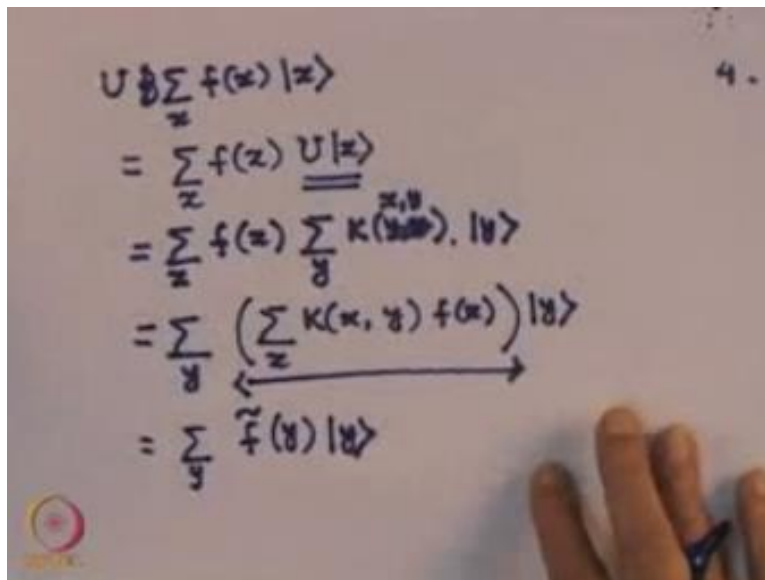 4.
U ∑_x f(x) |x>
= ∑_x f(x) U|x>
= ∑_x f(x) ∑_y K(x,y). |y>
= ∑_y (∑_x K(x, y) f(x)) |y>
= ∑_y f̃(y) |y>